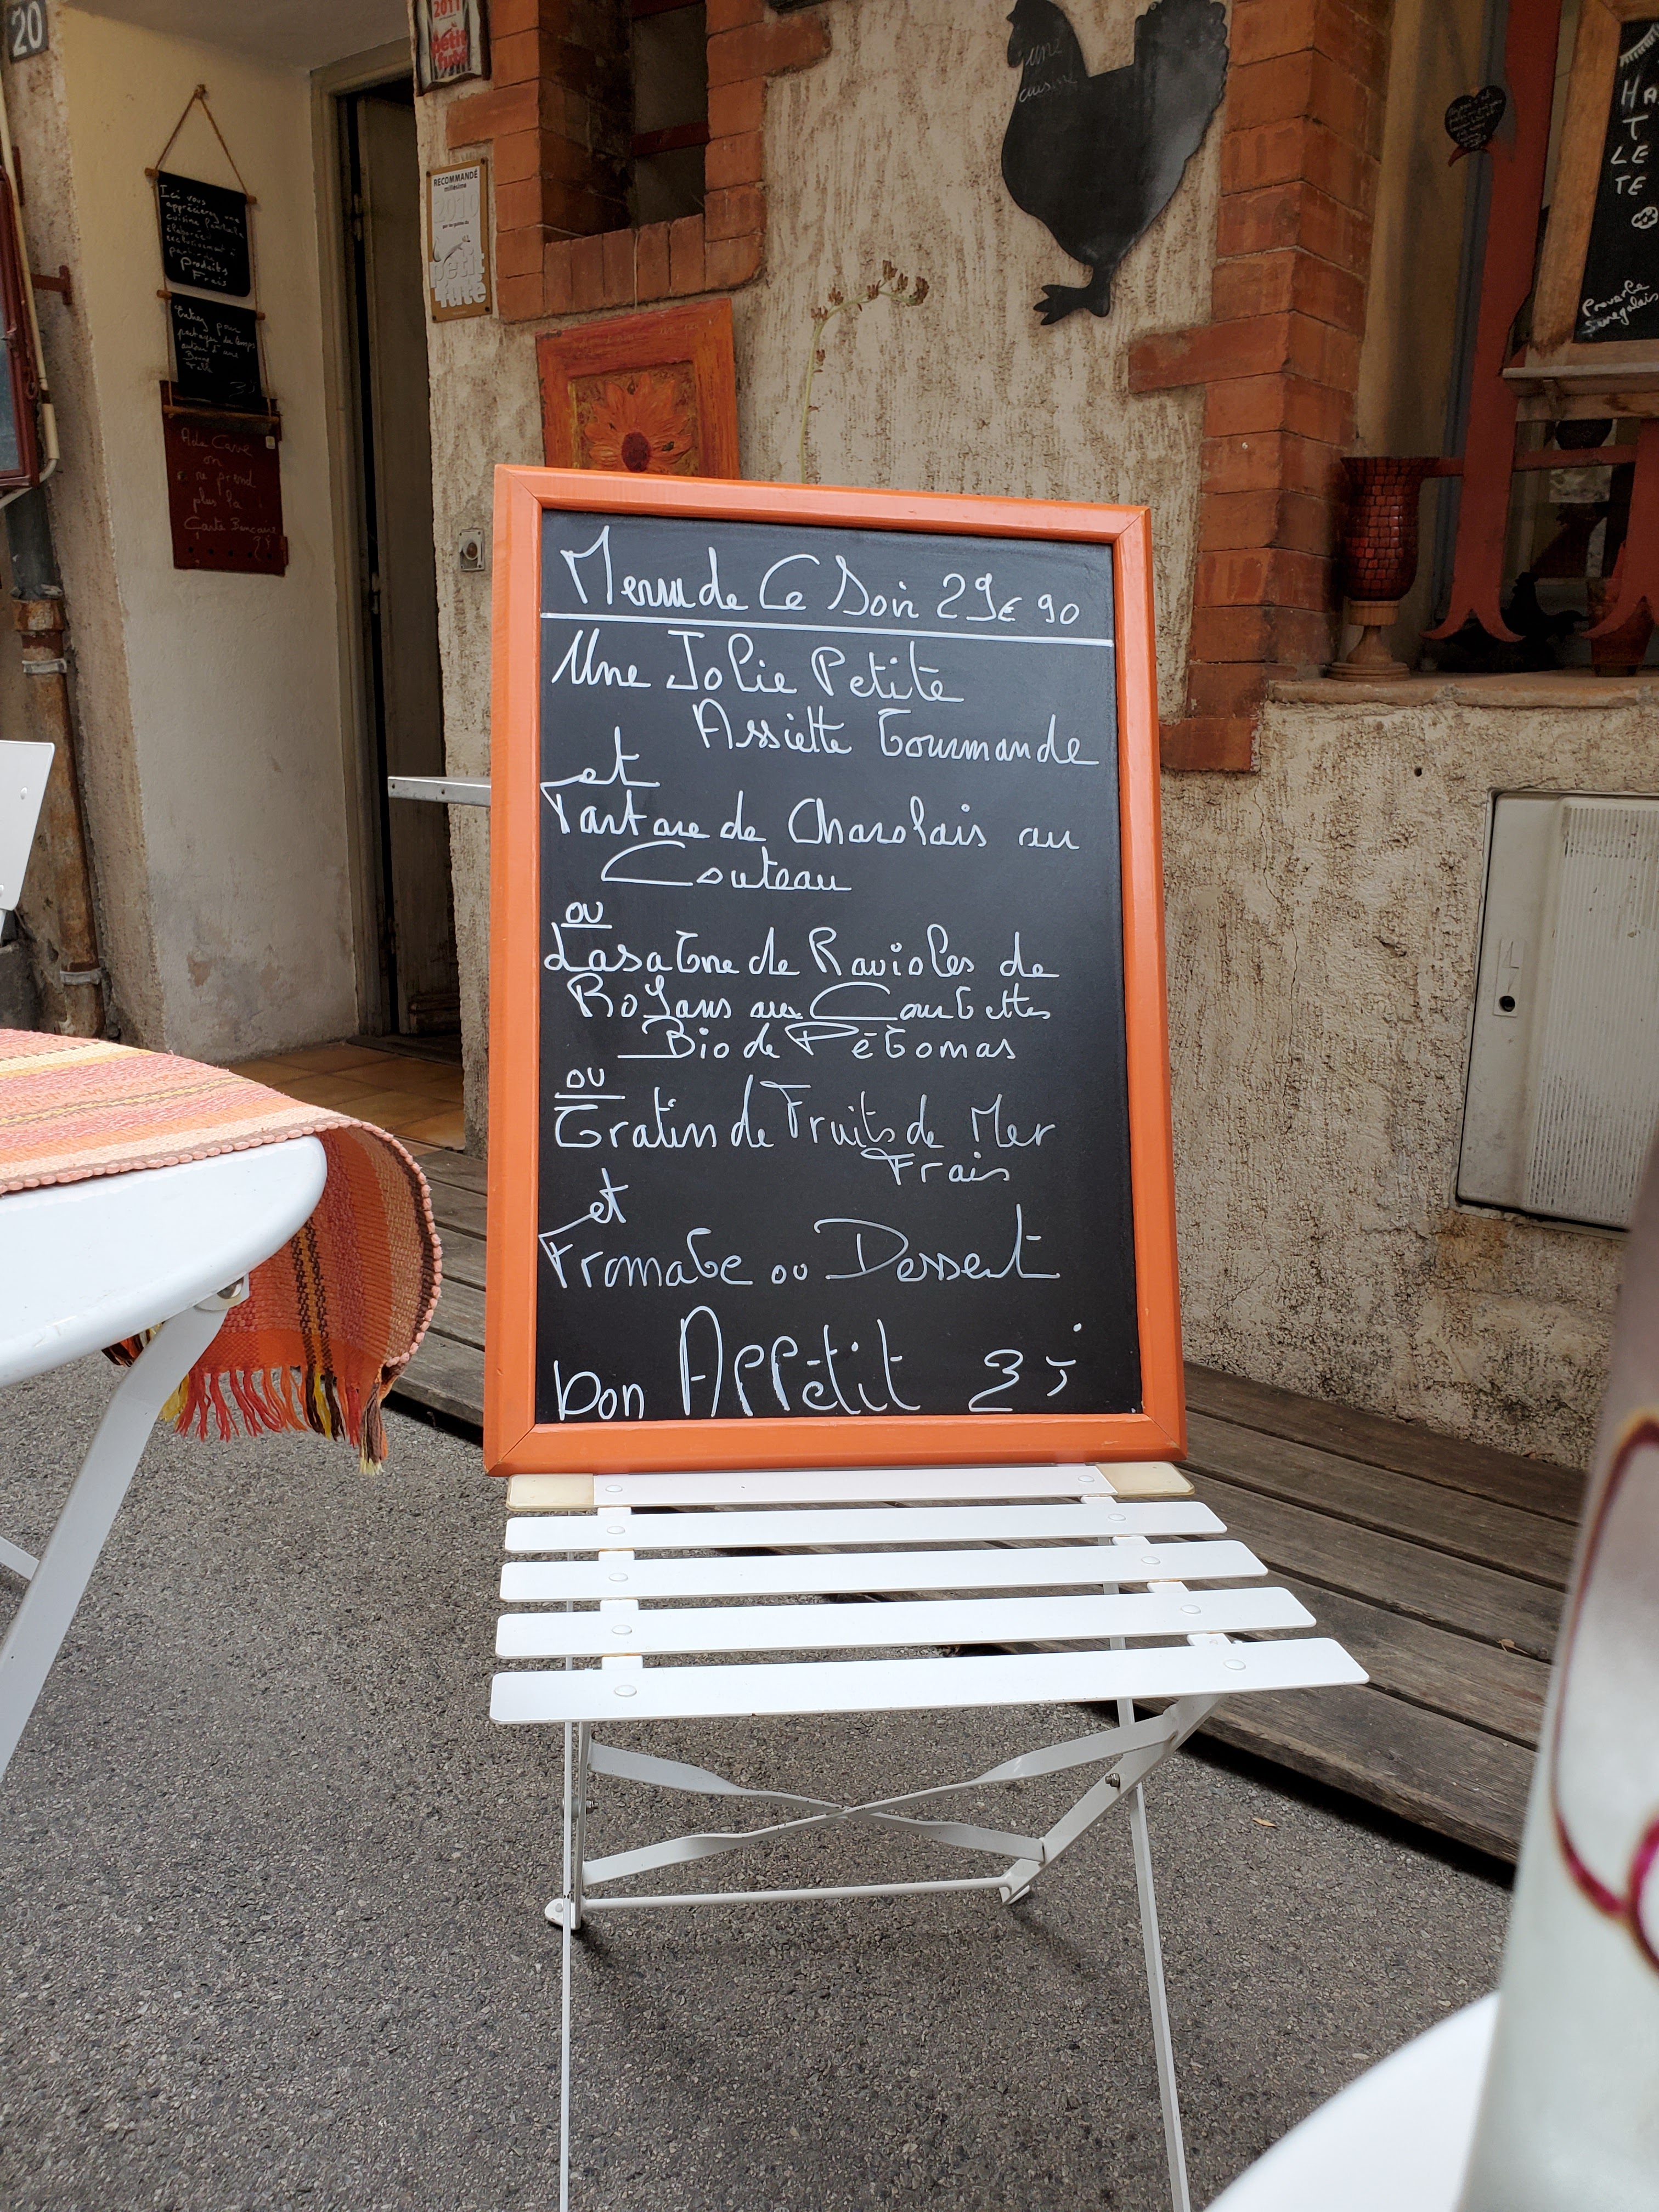 20
2011
petit
futé
RECOMMANDÉ
millésime
2010
petit
futé
une
cuisine
Ici vous
apprécierez une
cuisine
élaborée
exclusivement à
Produits
Frais
Entrez pour
partager du temps
autour d'une
Bonne
Table
A la Casse
on
ne prend
plus la
Carte Bancaire
HA
T
LE
TE
Proverbe
Senegalais
Menu de Ce Soir 29€90
Une Jolie Petite
Assiette Gourmande
et
Tartare de Charolais au
Couteau
ou
Lasagne de Ravioles de
Royans aux Courgettes
Bio de Pégomas
ou
Gratin de Fruits de Mer
Frais
et
Fromage ou Dessert
bon Appétit